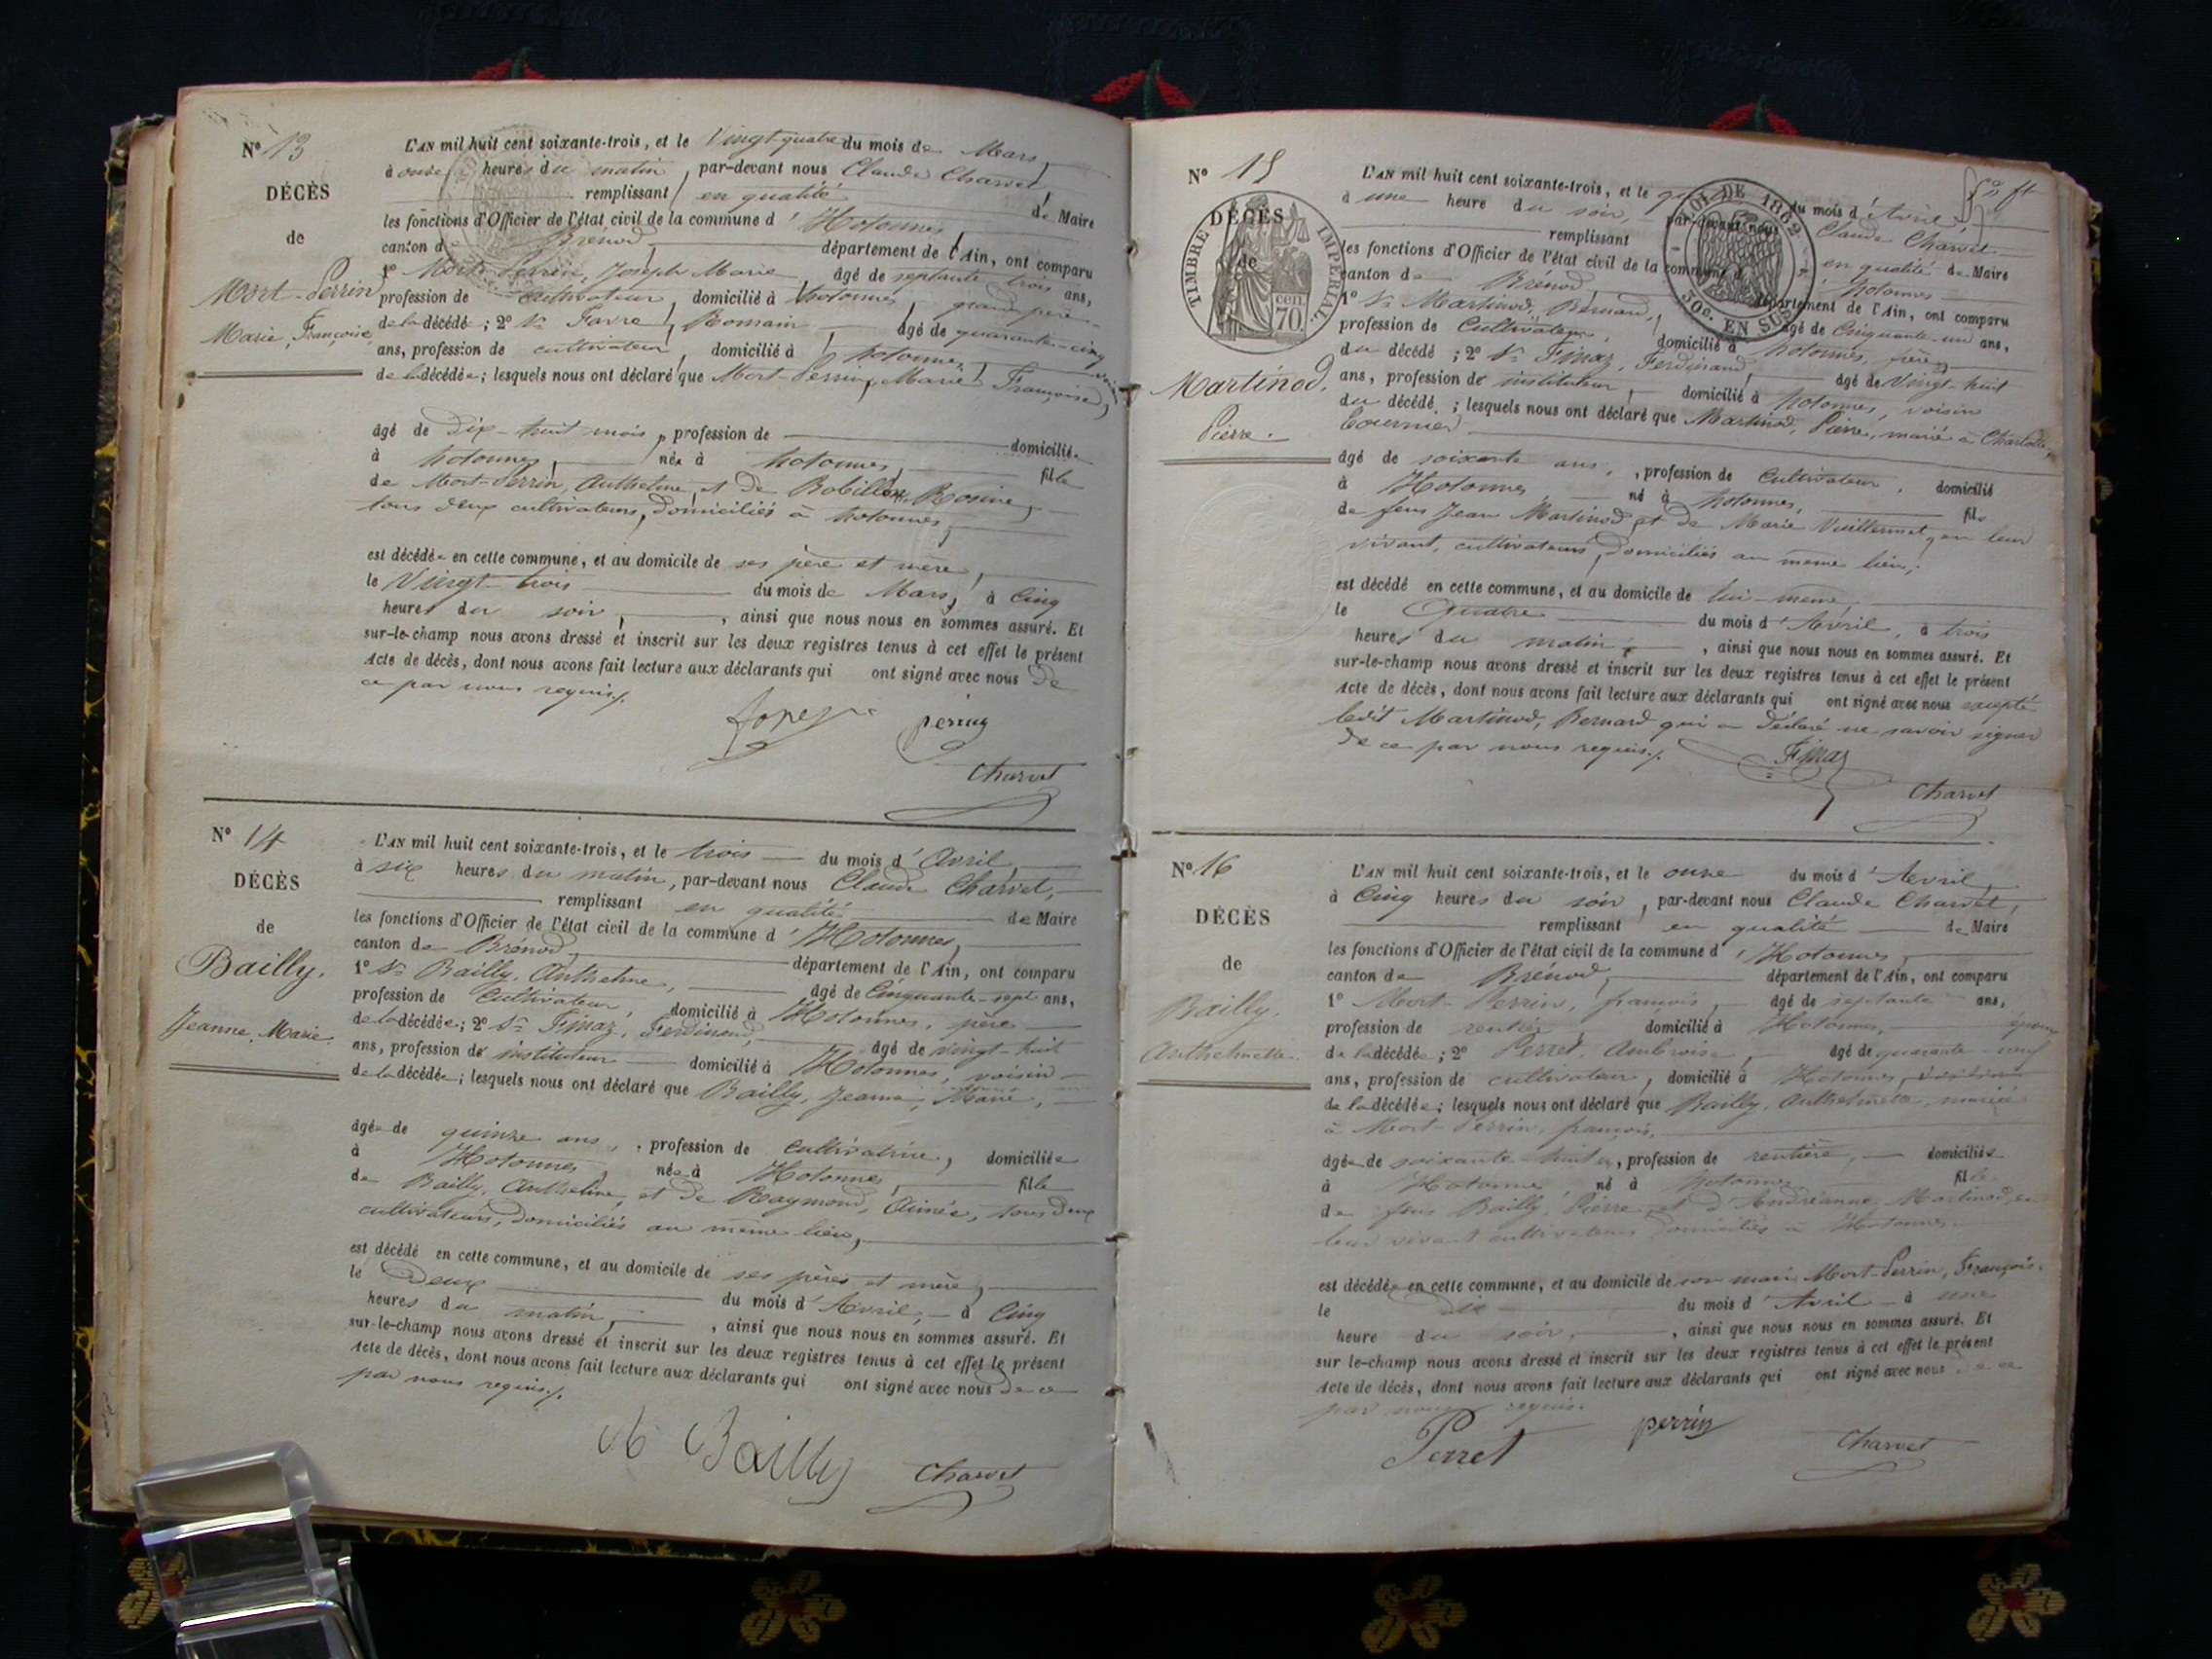 N° 13
DÉCÈS
de
Mort-Perrin
Marie, Françoise
L'AN mil huit cent soixante-trois, et le Vingt-quatre du mois de Mars,
à onze heures du matin, par-devant nous Claude Charvet,
remplissant en qualité de Maire
les fonctions d'Officier de l'état civil de la commune d'Hotonnes,
canton de Brénod, département de l'Ain, ont comparu
1° Mort-Perrin, Joseph Marie âgé de septante trois ans,
profession de cultivateur, domicilié à hotonnes, grand père
de la décédée ; 2° Sr Favre, Romain âgé de quarante-cinq
ans, profession de cultivateur, domicilié à hotonnes, voisin
de la décédée ; lesquels nous ont déclaré que Mort-Perrin, Marie Françoise,
âgé de dix-huit mois, profession de domiciliée
à hotonnes, née à hotonnes, fille
de Mort-Perrin, Anthelme, et de Robillon, Rosine,
tous deux cultivateurs, domiciliés à hotonnes,
est décédée en cette commune, et au domicile de ses père et mère,
le Vingt-trois du mois de Mars, à Cinq
heures du soir, , ainsi que nous nous en sommes assuré. Et
sur-le-champ nous avons dressé et inscrit sur les deux registres tenus à cet effet le présent
Acte de décès, dont nous avons fait lecture aux déclarants qui ont signé avec nous de
ce par nous requis./.
perrin
Charvet
N° 14
DÉCÈS
de
Bailly,
Jeanne, Marie.
L'AN mil huit cent soixante-trois, et le trois du mois d'Avril,
à six heures du matin, par-devant nous Claude Charvet,
remplissant en qualité de Maire
les fonctions d'Officier de l'état civil de la commune d'Hotonnes,
canton de Brénod, département de l'Ain, ont comparu
1° Sr Bailly, Anthelme, âgé de Cinquante-sept ans,
profession de Cultivateur, domicilié à Hotonnes, père
de la décédée ; 2° Sr Finaz, Ferdinand, âgé de vingt-huit
ans, profession de instituteur domicilié à Hotonnes, voisin
de la décédée ; lesquels nous ont déclaré que Bailly, Jeanne, Marie,
âgée de quinze ans, profession de cultivatrice, domiciliée
à Hotonnes, née à Hotonnes, fille
de Bailly, Anthelme, et de Raymond, Aimée, tous deux
cultivateurs, domiciliés au même lieu,
est décédé en cette commune, et au domicile de ses pères et mère,
le Deux du mois d'Avril, à Cinq
heures du matin, , ainsi que nous nous en sommes assuré. Et
sur-le-champ nous avons dressé et inscrit sur les deux registres tenus à cet effet le présent
Acte de décès, dont nous avons fait lecture aux déclarants qui ont signé avec nous de ce
par nous requis./.
Bailly
Charvet
N° 15
DÉCÈS
de
TIMBRE IMPÉRIAL.
cen. 70
Martinod,
Pierre.
LOI DE 1862
50c. EN SUS
L'AN mil huit cent soixante-trois, et le du mois d'Avril
à une heure du soir, par-devant nous Claude Charvet
remplissant en qualité de Maire
les fonctions d'Officier de l'état civil de la commune d' hotonnes
canton de Brénod, département de l'Ain, ont comparu
1° Sr Martinod, Bernard, âgé de Cinquante-un ans,
profession de Cultivateur, domicilié à hotonnes, frère
du décédé ; 2° Sr Finaz, Ferdinand, âgé de Vingt-huit
ans, profession de instituteur, domicilié à hotonnes, voisin
du décédé ; lesquels nous ont déclaré que Martinod, Pierre, marié à Charlotte,
Tournier
âgé de soixante ans, , profession de Cultivateur, domicilié
à Hotonnes, né à hotonnes, fils
de feus Jean Martinod et de Marie Vuillermet, en leur
vivant, cultivateurs, domiciliés au même lieu,
est décédé en cette commune, et au domicile de lui-même
le Quatre du mois d'Avril, à trois
heures du matin, , ainsi que nous nous en sommes assuré. Et
sur-le-champ nous avons dressé et inscrit sur les deux registres tenus à cet effet le présent
Acte de décès, dont nous avons fait lecture aux déclarants qui ont signé avec nous excepté
ledit Martinod, Bernard qui a déclaré ne savoir signer
de ce par nous requis./.
Finaz
Charvet
N° 16
DÉCÈS
de
Bailly,
Anthelmette.
L'AN mil huit cent soixante-trois, et le onze du mois d'Avril,
à Cinq heures du soir, par-devant nous Claude Charvet,
remplissant en qualité de Maire
les fonctions d'Officier de l'état civil de la commune d'Hotonnes,
canton de Brénod, département de l'Ain, ont comparu
1° Mort-Perrin, françois, âgé de septante ans,
profession de rentier, domicilié à Hotonnes, époux
de la décédée ; 2° Perret, Ambroise, âgé de quarante-neuf
ans, profession de cultivateur, domicilié à Hotonnes, voisin
de la décédée ; lesquels nous ont déclaré que Bailly, Anthelmette, mariée
à Mort-Perrin, françois,
âgée de soixante-huit, profession de rentière, domiciliée
à Hotonnes né à hotonnes fille
de feus Bailly, Pierre, et d'Andréanne Martinod, en
leur vivant cultivateurs domiciliés à Hotonnes
est décédée en cette commune, et au domicile de son mari Mort-Perrin, François.
le dix du mois d'Avril à une
heure du soir, , ainsi que nous nous en sommes assuré. Et
sur le-champ nous avons dressé et inscrit sur les deux registres tenus à cet effet le présent
Acte de décès, dont nous avons fait lecture aux déclarants qui ont signé avec nous de ce
par nous requis.
Perret
perrin
Charvet